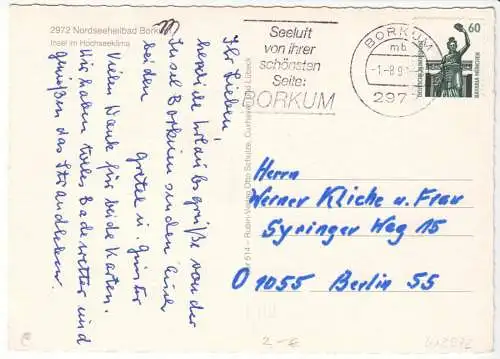 2972 Nordseeheilbad Borkum
Insel im Hochseeklima
Ihr Lieben,
herzliche Urlaubsgrüße von der
Insel Borkum senden Euch
beiden
Gretel u. Günter
Vielen Dank für beide Karten.
Wir haben tolles Badewetter und
genießen das Strandleben.
514 – Rubin-Verlag Otto Schulze, Cuxhaven und Lübeck
Seeluft
von ihrer
schönsten
Seite:
BORKUM
BORKUM
mb
-1.-8.9
297
60
DEUTSCHE BUNDESPOST
BAVARIA MÜNCHEN
Herrn
Werner Kliche u. Frau
Syringer Weg 15
O 1055 Berlin 55
2,-€